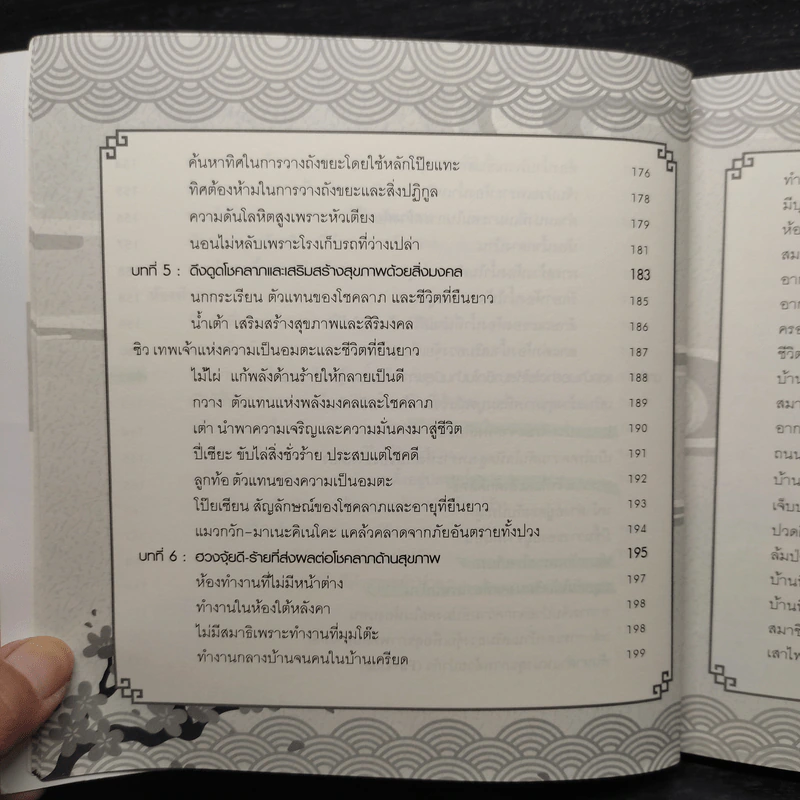 ค้นหาทิศในการวางถังขยะโดยใช้หลักโป๊ยแทะ 176
ทิศต้องห้ามในการวางถังขยะและสิ่งปฏิกูล 178
ความดันโลหิตสูงเพราะหัวเตียง 179
นอนไม่หลับเพราะโรงเก็บรถที่ว่างเปล่า 181
บทที่ 5 : ดึงดูดโชคลาภและเสริมสร้างสุขภาพด้วยสิ่งมงคล 183
นกกระเรียน ตัวแทนของโชคลาภ และชีวิตที่ยืนยาว 185
น้ำเต้า เสริมสร้างสุขภาพและสิริมงคล 186
ซิว เทพเจ้าแห่งความเป็นอมตะและชีวิตที่ยืนยาว 187
ไม้ไผ่ แก้พลังด้านร้ายให้กลายเป็นดี 188
กวาง ตัวแทนแห่งพลังมงคลและโชคลาภ 189
เต่า นำพาความเจริญและความมั่นคงมาสู่ชีวิต 190
ปี่เซียะ ขับไล่สิ่งชั่วร้าย ประสบแต่โชคดี 191
ลูกท้อ ตัวแทนของความเป็นอมตะ 192
โป๊ยเซียน สัญลักษณ์ของโชคลาภและอายุที่ยืนยาว 193
แมวกวัก-มาเนะคิเนโคะ แคล้วคลาดจากภัยอันตรายทั้งปวง 194
บทที่ 6 : ฮวงจุ้ยดี-ร้ายที่ส่งผลต่อโชคลาภด้านสุขภาพ 195
ห้องทำงานที่ไม่มีหน้าต่าง 197
ทำงานในห้องใต้หลังคา 198
ไม่มีสมาธิเพราะทำงานที่มุมโต๊ะ 198
ทำงานกลางบ้านจนคนในบ้านเครียด 199